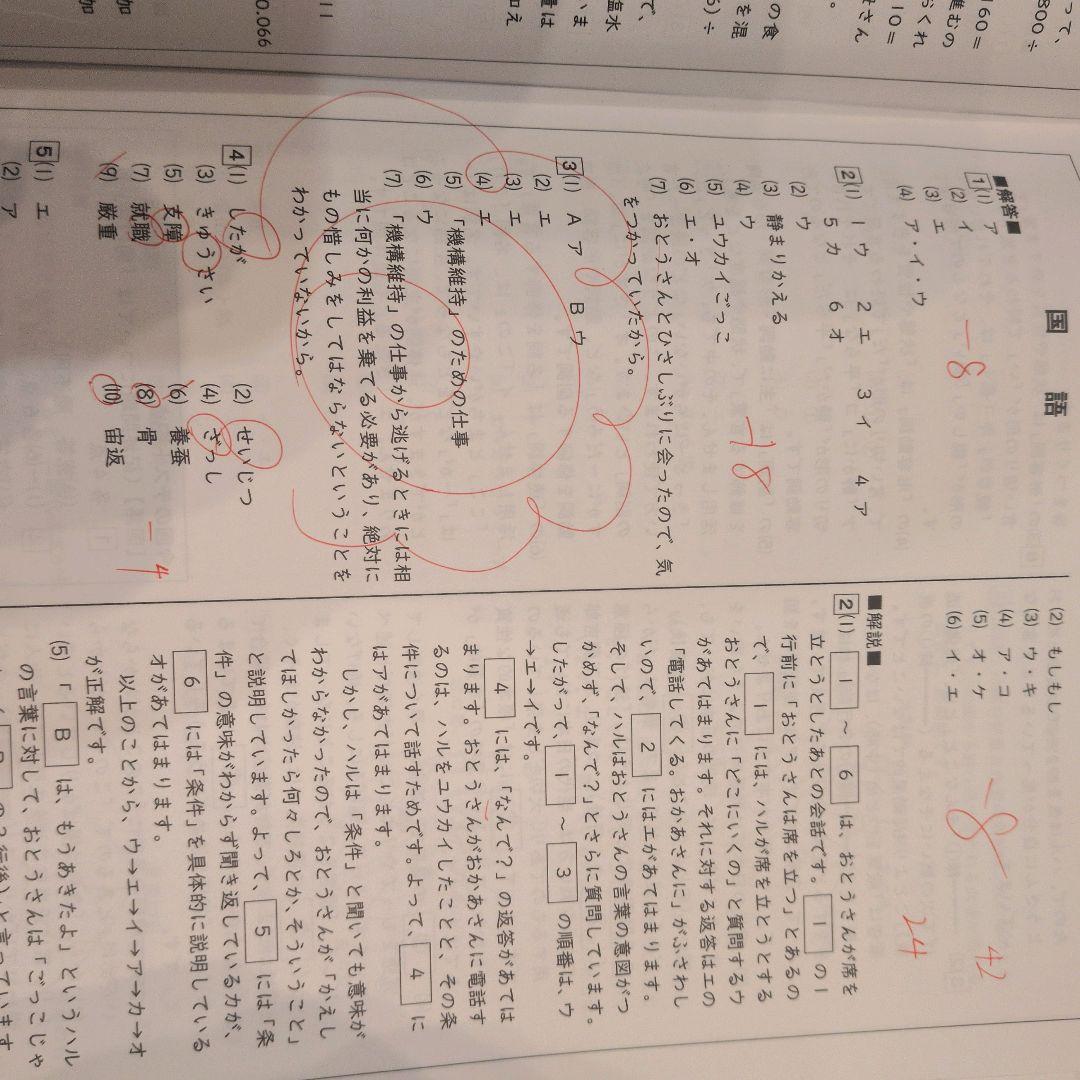 国語
■解答■
1(1) ア
(2) イ
(3) エ
(4) ア・イ・ウ
-8
2(1) 1 ウ 2 エ 3 イ 4 ア
5 カ 6 オ
(2) ウ
(3) 静まりかえる
(4) ウ
(5) ユウカイごっこ
(6) エ・オ
(7) おとうさんとひさしぶりに会ったので、気
をつかっていたから。
-18
3(1) A ア B ウ
(2) エ
(3) エ
(4) エ
(5) 「機構維持」のための仕事
(6) ウ
(7) 「機構維持」の仕事から逃げるときには相
当に何かの利益を棄てる必要があり、絶対に
もの惜しみをしてはならないということを
わかっていないから。
4(1) したが (2) せいじつ
(3) きゅうさい (4) ざっし
(5) 支障 (6) 養蚕
(7) 就職 (8) 骨
(9) 厳重 (10) 宙返
-4
5(1) エ
(2) ア
(2) もしもし
(3) ウ・キ
(4) ア・コ
(5) オ・ケ
(6) イ・エ
-8
42
24
■解説■
2(1) 1 ～ 6 は、おとうさんが席を
立とうとしたあとの会話です。 1 の1
行前に「おとうさんは席を立つ」とあるの
で、 1 には、ハルが席を立とうとする
おとうさんに「どこにいくの」と質問するウ
があてはまります。それに対する返答はエの
「電話してくる。おかあさんに」がふさわし
いので、 2 にはエがあてはまります。
そして、ハルはおとうさんの言葉の意図がつ
かめず、「なんで？」とさらに質問しています。
したがって、 1 ～ 3 の順番は、ウ
→エ→イです。
4 には、「なんで？」の返答があては
まります。おとうさんがおかあさんに電話す
るのは、ハルをユウカイしたことと、その条
件について話すためです。よって、 4 に
はアがあてはまります。
しかし、ハルは「条件」と聞いても意味が
わからなかったので、おとうさんが「かえし
てほしかったら何々しろとか、そういうこと」
と説明しています。よって、 5 には「条
件」の意味がわからず聞き返しているカが、
6 には「条件」を具体的に説明している
オがあてはまります。
以上のことから、ウ→エ→イ→ア→カ→オ
が正解です。
(5) 「 B は、もうあきたよ」というハル
の言葉に対して、おとうさんは「ごっこじゃ
って、
800÷
160＝
進むの
おくれ
10＝
せさん
の食
を混
5)÷
で、
塩水
いま
量は
加え
11
0.066